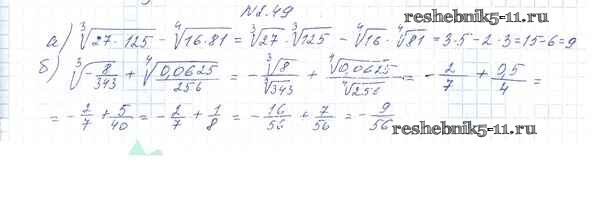 №2.49
reshebnik5-11.ru
а) ∛(27·125) − ∜(16·81) = ∛27·∛125 − ∜16·∜81 = 3·5−2·3=15−6=9
б) ∛(−8/343) + ∜(0,0625/256) = −∛8/∛343 + ∜0,0625/∜256 = −2/7 + 0,5/4 =
= −2/7 + 5/40 = −2/7 + 1/8 = −16/56 + 7/56 = −9/56
reshebnik5-11.ru